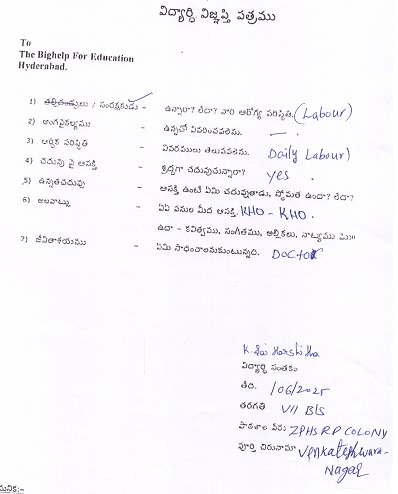 విద్యార్ధి విజ్ఞప్తి పత్రము
To
The Bighelp For Education
Hyderabad.
1) తల్లిదండ్రులు / సంరక్షకుడు - ఉన్నారా? లేదా? వారి ఆరోగ్య పరిస్థితి. (Labour)
2) అంగవైకల్యము - ఉన్నచో వివరించవలెను. —.
3) ఆర్ధిక పరిస్థితి - వివరములు తెలుపవలెను. Daily Labour)
4) చదువు పై ఆసక్తి - శ్రద్ధగా చదువుచున్నారా? yes.
5) ఉన్నతచదువు - ఆసక్తి ఉంటే ఏమి చదువుతాడు, స్థోమత ఉందా? లేదా?
6) అలవాట్లు - ఏఏ పనుల మీద ఆసక్తి. KHO - KHO.
ఉదా - కవిత్వము, సంగీతము, అల్లికలు, నాట్యము
7) జీవితాశయము - ఏమి సాధించాలనుకుంటున్నది. DOCTOR
K. Sai Harshitha
విద్యార్ధి సంతకం
తేది. /06/2025
తరగతి VII B/S
పాఠశాల పేరు ZPHS RP COLONY
పూర్తి చిరునామా Venkateshwara-
Nagar